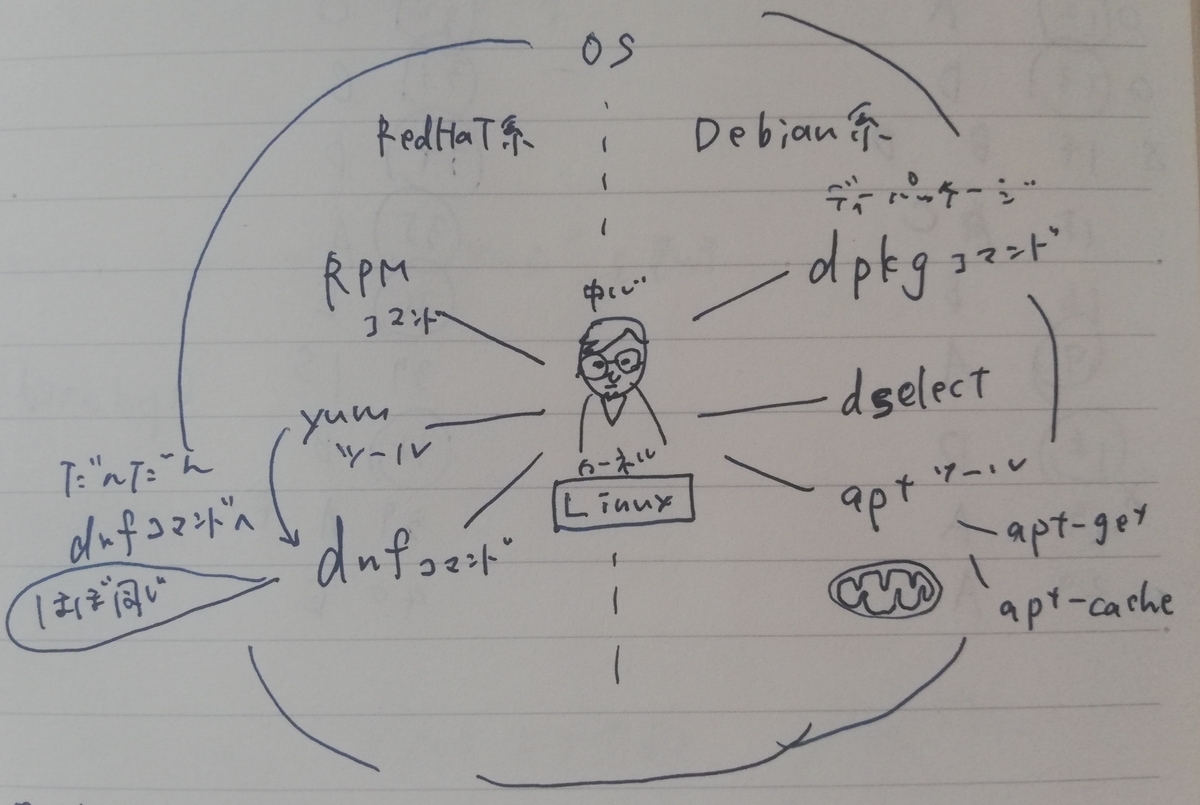 OS
RedHaT系
Debian系
ディーパッケージ
dpkgコマンド
RPM
コマンド
中心
dselect
yum
ツール
カーネル
Linux
aptツール
apt-get
apt-cache
だんだーん
dnfコマンドへ
dnfコマンド
ほぼ同じ